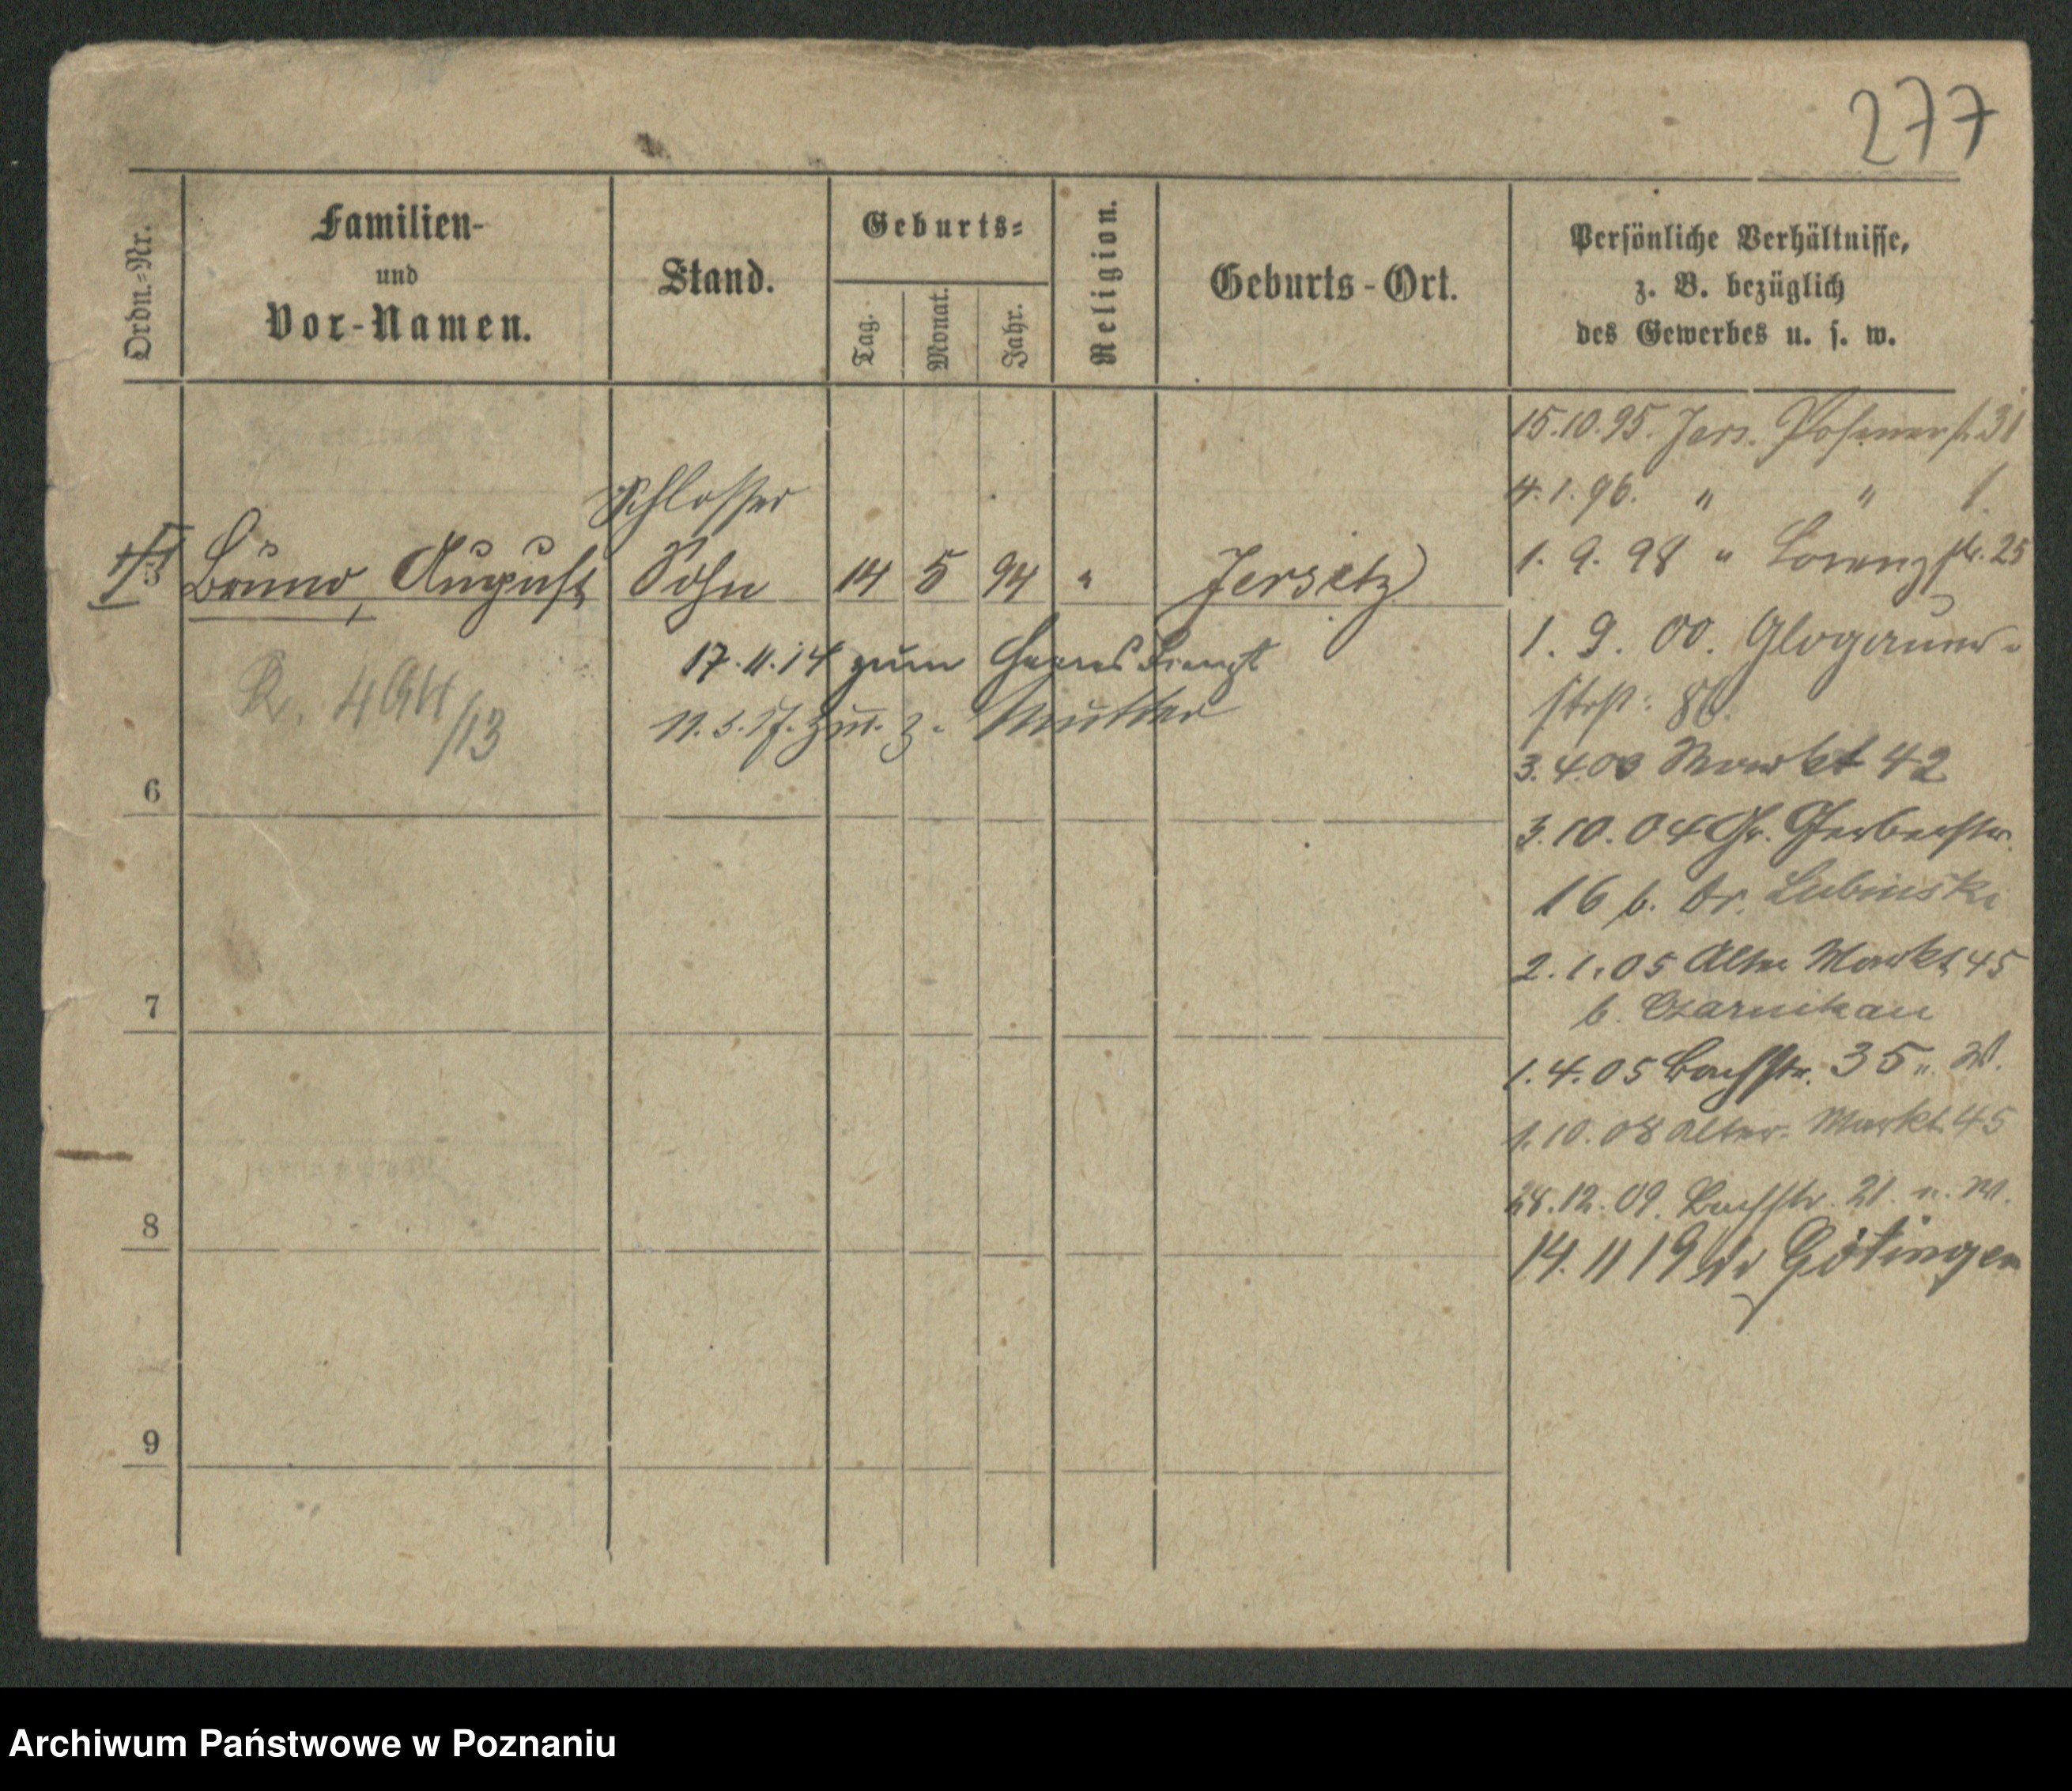 277
Ordn.=Nr.
Familien-
und
Vor-Namen.
Stand.
Geburts=
Tag.
Monat.
Jahr.
Religion.
Geburts-Ort.
Persönliche Verhältnisse,
z. B. bezüglich
des Gewerbes u. s. w.
Schlosser
5 Bruno, August Sohn 14 5 94 " Jersitz
17.11.14 zum Heeresdienst
11.3.17. zur. z. Mutter
R. 494/13
6
7
8
9
15.10.95. Jers. Posenerst. 31
4.1.96. " " 1.
1. 9. 98 " Lorenzstr. 25
1. 9. 00. Glogauer-
strß: 86.
3.4.03 Markt 42
3.10.04 Gr. Gerberstr.
16 b. Dr. Lubinski
2.1.05 Alter Markt 45
b. Czarnikau
1.4.05 Bachstr. 35 M.
1.10.08 Alter Markt 45
28.12.09. Bachstr. 21. M.
14.11 19 Götingen
Archiwum Państwowe w Poznaniu